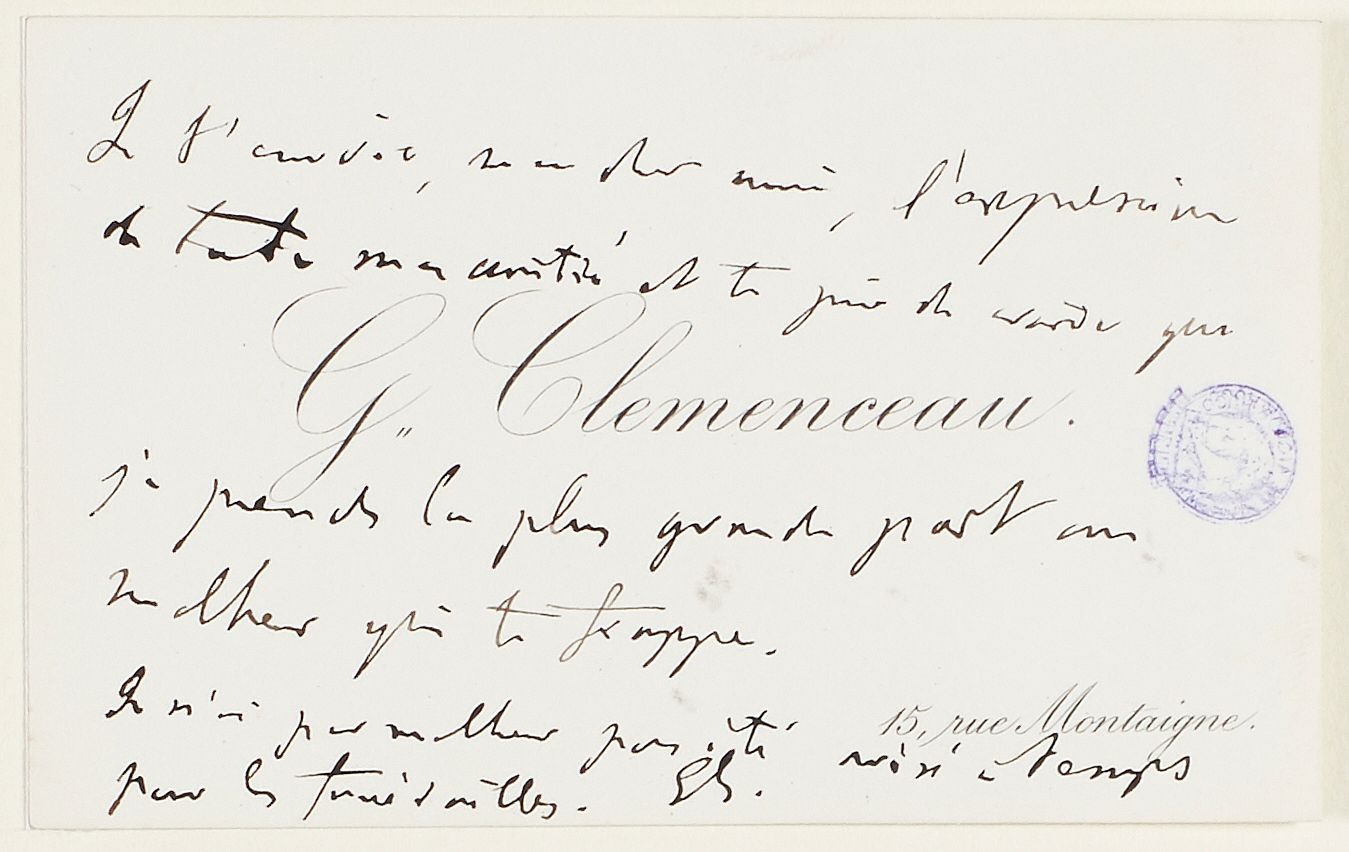 Je t'envoie, mon cher ami, l'expression
de toute mon amitié et te prie de croire que
G. Clemenceau.
je prends la plus grande part au
malheur qui te frappe.
Je n'ai par malheur pas été avisé à temps
15, rue Montaigne.
pour les funérailles. GC.